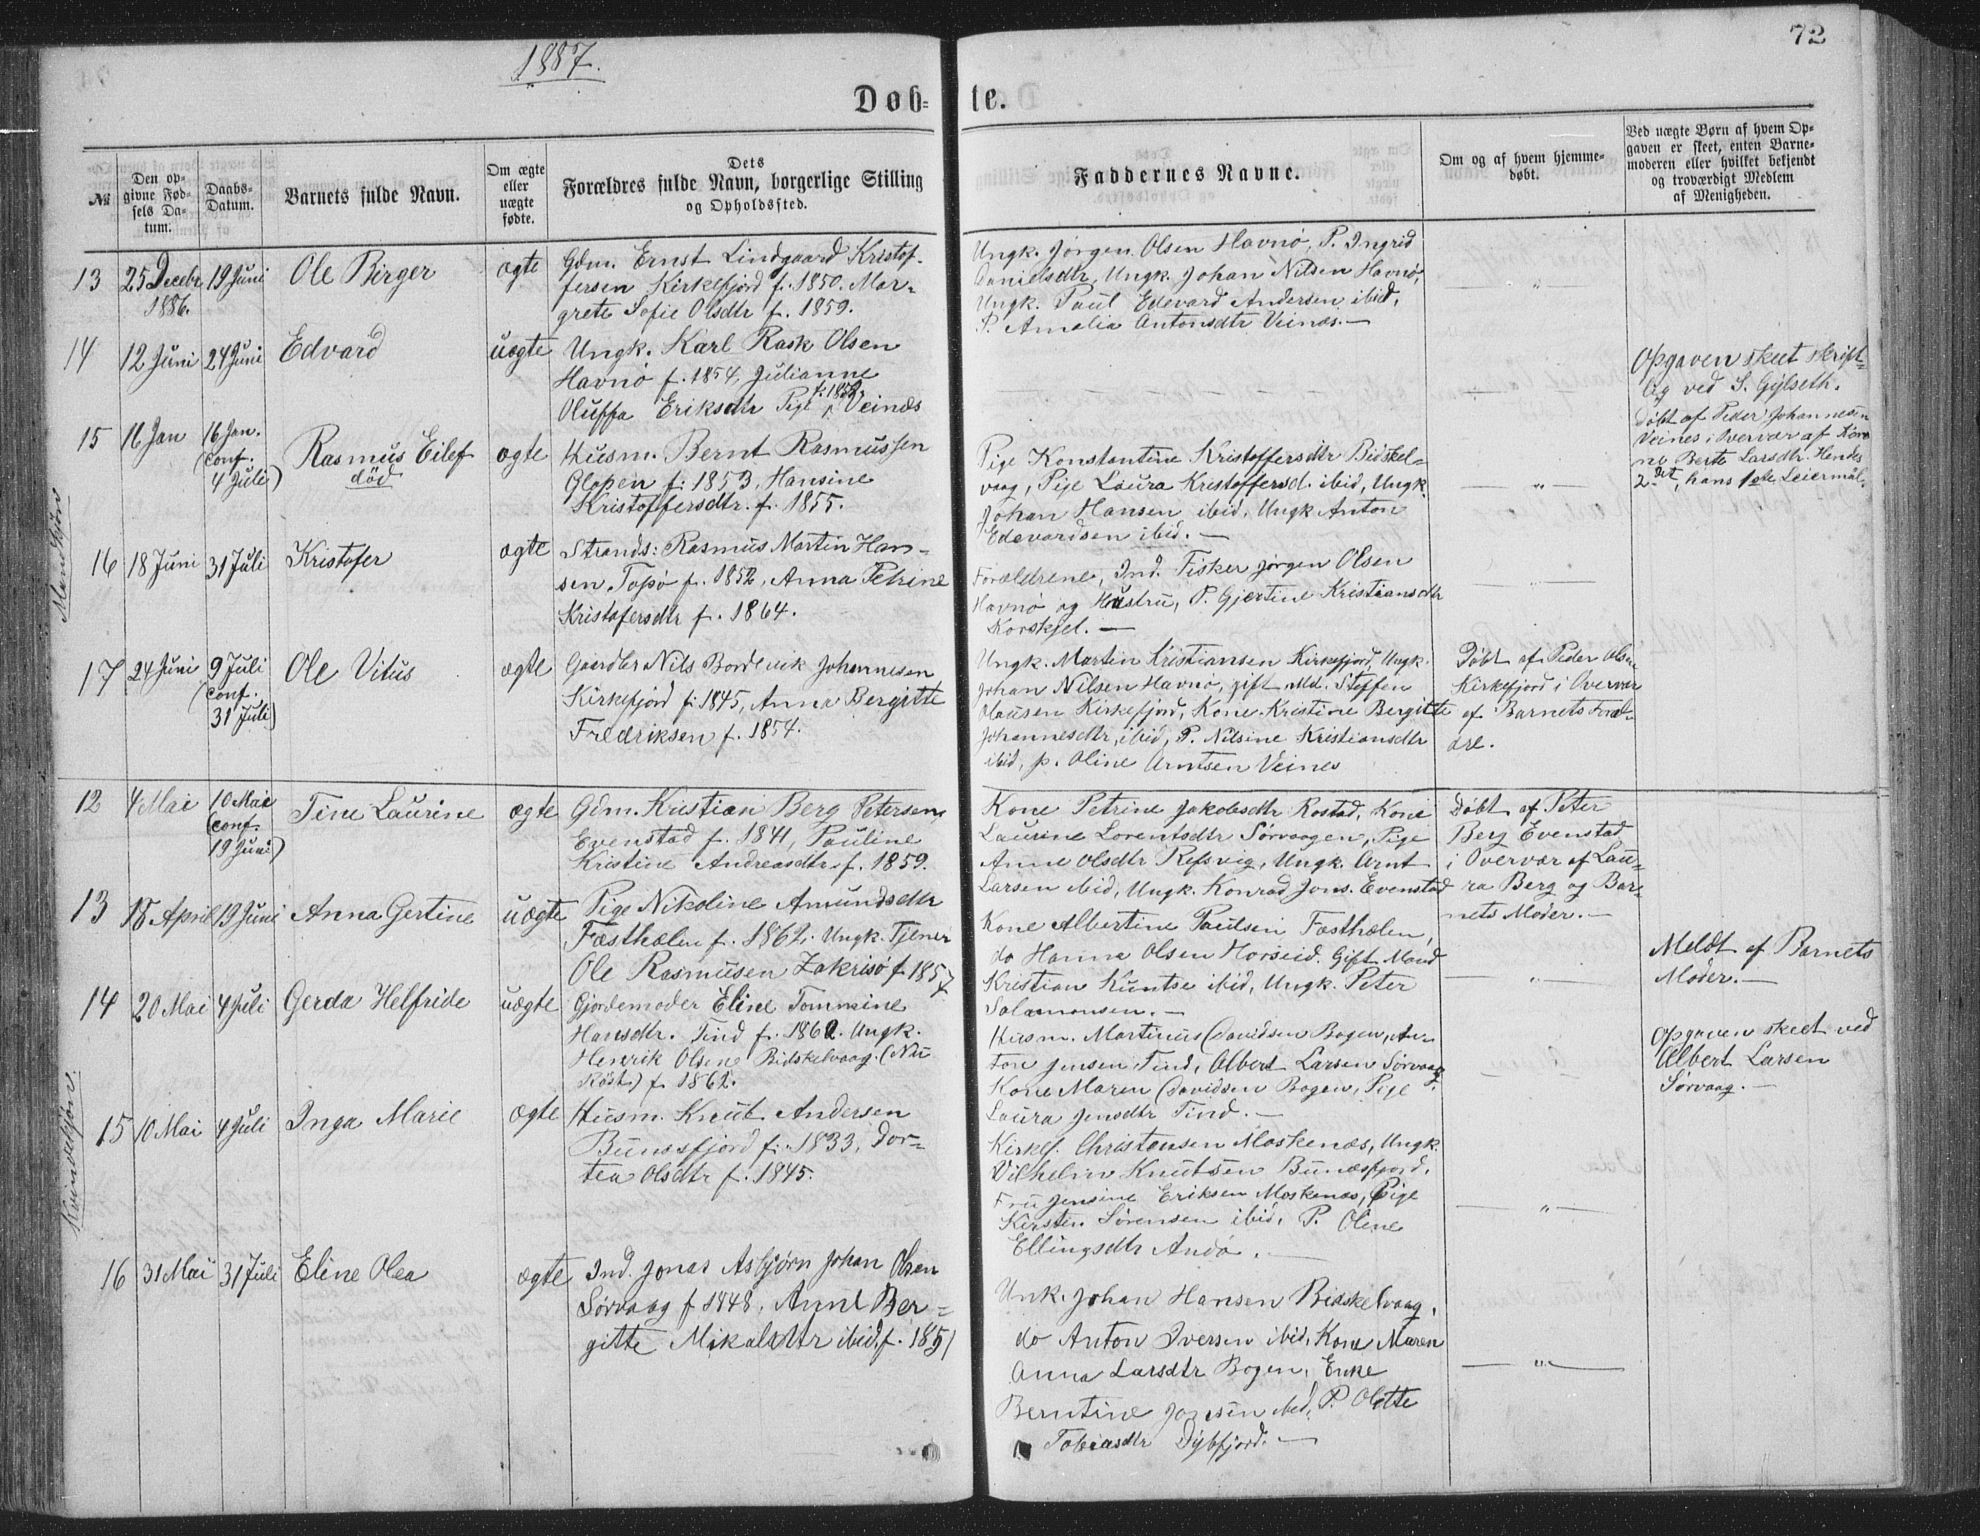 1887.
72
Døb-
te.
№
Den op-
givne Fød-
sels Da-
tum.
Daabs-
Datum.
Barnets fulde Navn.
Om ægte
eller
uægte
fødte.
Dets
Forældres fulde Navn, borgerlige Stilling
og Opholdssted.
Faddernes Navne.
Om og af hvem hjemme-
døbt.
Ved uægte Børn af hvem Op-
gaven er skeet, enten Barne-
moderen eller hvilket bekjendt
og troværdigt Medlem
af Menigheden.
Mandkjøn
13
25 Decebr
1886.
19 Juni
Ole Birger
ægte
Gdm. Ernst Lindgaard Kristof-
fersen Kirkefjord f. 1850. Mar-
grete Sofie Olsdtr f. 1859.
Ungk. Jørgen Olsen Havnø, P. Ingrid
Danielsdtr, Ungk. Johan Nilsen Havnø,
Ungk. Paul Edevard Andersen ibid,
P. Amalia Antonsdtr Veines.—
— " —
14
12 Juni
24 Juni
Edvard
uægte
Ungk. Karl Rask Olsen
Havnø f. 1854, Julianne
Oluffa Eriksdtr Pige Veinæs
Opgaven skeet skrift-
lig ved S. Gylseth.
Døbt af Peder Johannesen
Veines i Overvær af Kone
Berte Larsdtr. Hendes
2det, hans 1ste Leiermål.
15
16 Jan
16 Jan.
(conf.
4 Juli)
Rasmus Eilef
død
ægte
Husm. Bernt Rasmussen
Glopen f. 1853, Hansine
Kristoffersdtr. f. 1855.
Pige Konstantine Kristoffersdtr Bidskel-
vaag, Pige Laura Kristoffersd. ibid, Ungk.
Johan Hansen ibid, Ungk Anton
Edevardsen ibid. —
— " —
16
18 Juni
31 Juli
Kristofer
ægte
Strands: Rasmus Martin Han-
sen Topø f. 1852, Anna Petrine
Kristofersdtr f. 1864.
Forældrene, Ind. Fisker Jørgen Olsen
Havnø og Hustru, P. Gjertine Kristiansdtr
Korskjel. —
17
24 Juni
9 Juli
(conf.
31 Juli)
Ole Vitus
ægte
Gaardbr Nils Bordevik Johannesen
Kirkefjord f. 1845, Anna Bergitte
Fredriksen f. 1854.
Ungk. Martin Kristiansen Kirkefjord, Ungk.
Johan Nilsen Havnø, gift Md. Steffen
Olausen Kirkefjord, Kone Kristine Bergitte
Johannesdtr, ibid, P. Nilsine Kristiansdtr
ibid, p. Oline Arntsen Veines
Døbt af Peder Olsen
Kirkefjord i Overvær
af Barnets Foræl-
dre.
Kvindekjøn.
12
4 Mai
10 Mai
(conf.
19 Juni)
Tine Laurine
ægte
Gdm. Kristian Berg Petersen
Evenstad f. 1841, Pauline
Kristine Andreasdtr f. 1859.
Kone Petrine Jakobsdtr Rostad, Kone
Laurine Lorentsdtr Sørvaagen, Pige
Anne Olsdtr Refsvig, Ungk. Arnt
Larsen ibid, Ungk. Konrad Jons. Evenstad
Døbt af Peter
Berg Evenstad
i Overvær af Lau-
ra Berg og Bar-
nets Moder. —
13
18 April
19 Juni
Anna Gertine
uægte
Pige Nikoline Amundsdtr
Fæsthælen f. 1862. Ungk. Tjener
Ole Rasmusen Zakrisø f. 1857
Kone Albertine Paulsen Fæsthælen,
do Hanna Olsen Horseid. Gift Mand
Kristian Kuntse ibid, Ungk. Peter
Salamonsen. —
Meldt af Barnets
Moder. —
14
20 Mai
4 Juli
Gerda Helfride
uægte
Gjordemoder Eline Tommine
Hansdtr. Tind f. 1862. Ungk.
Henrik Olsen Bidskelvaag. (Nu
Røst) f. 1862.
Husm. Martinus Davidsen Bogen, An-
ton Jensen Tind, Albert Larsen Sørvaag
Kone Maren Davidsen Bogen, Pige
Laura Jensdtr Tind. —
Opgaven skeet ved
Albert Larsen
Sørvaag. —
15
10 Mai
4 Juli
Inga Marie
ægte
Husm. Knut Andersen
Bunæsfjord f. 1833, Dor-
tea Olsdtr f. 1845.
Kirkes. Christensen Moskenæs, Ungk.
Vilhelm Knutsen Bunæsfjord,
Fru Jensine Eriksen Moskenæs, Pige
Kirsten Sørensen ibid, P. Oline
Ellingsdtr Andø. —
— " —
16
31 Mai
31 Juli
Eline Olea
ægte
Ind. Jonas Asbjørn Johan Olsen
Sørvaag f. 1848, Anne Ber-
gitte Mikalsdtr ibid, f. 1851
Unk. Johan Hansen Bidskelvaag,
do Anton Iversen ibid, Kone Maren
Anna Larsdtr Bogen, Enke
Berntine Jonsen ibid, P. Olette
Tobiasdtr Dybfjord. —
— " —